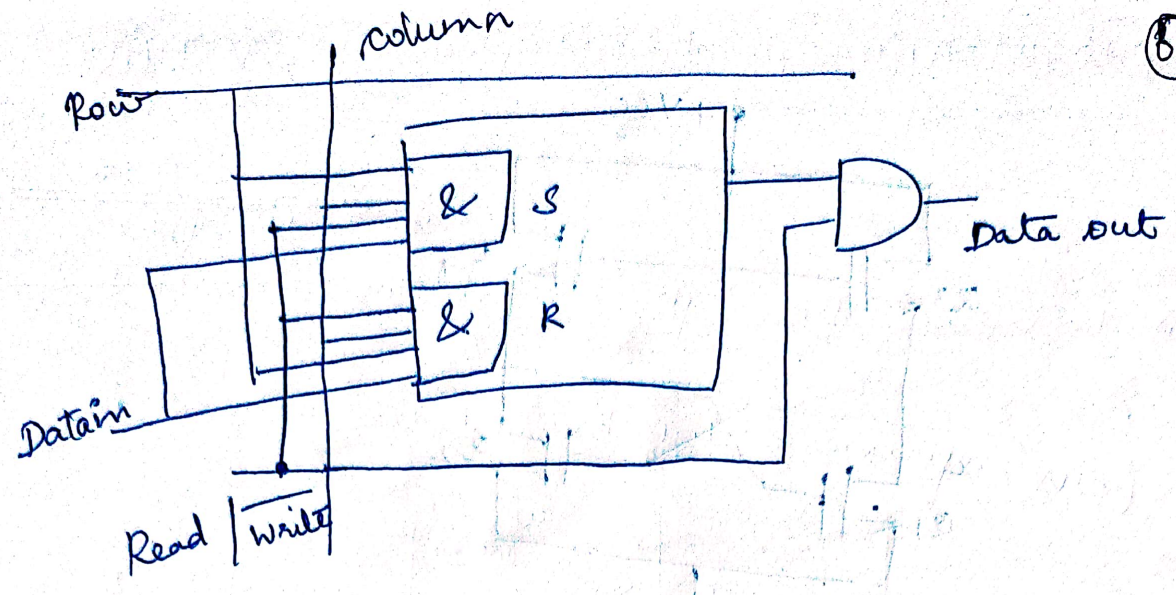 column
Row
& S
& R
Data out
Datain
Read / Write